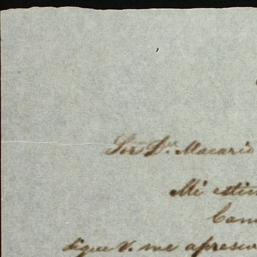 Sor Dn. Macario
Mi estim
Cam
sigue V. me apresur